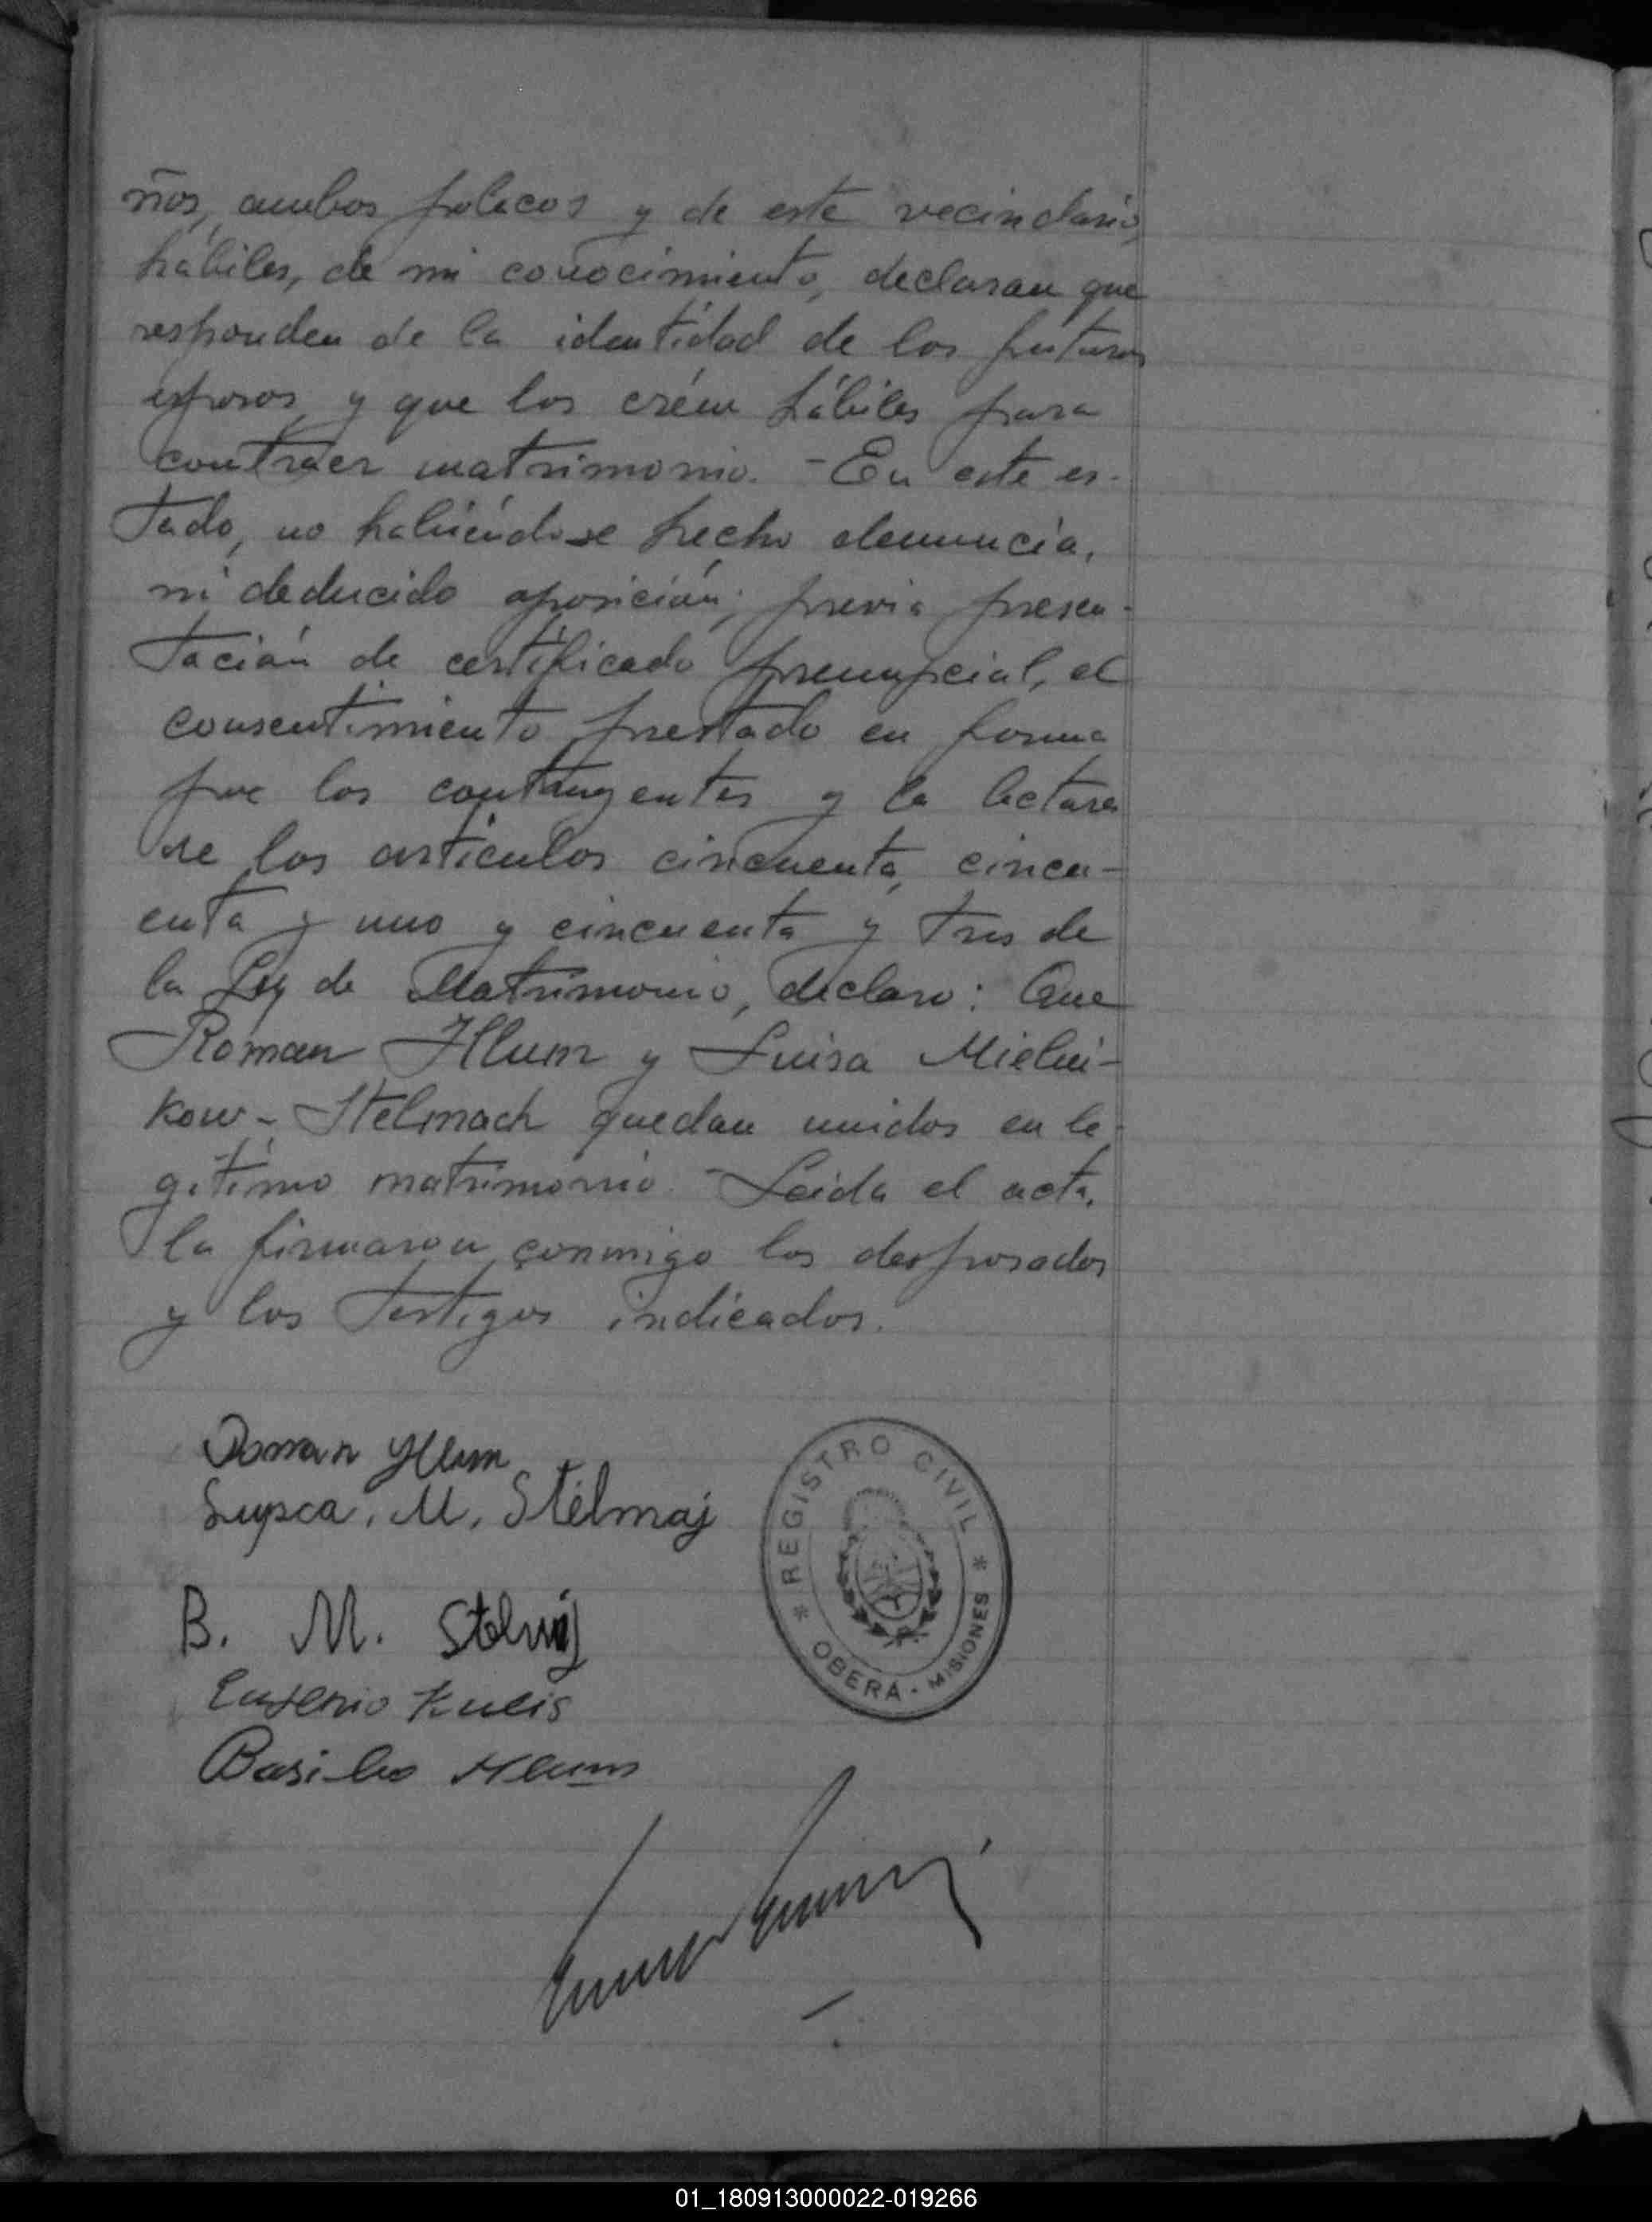 ños, ambos polacos y de este vecindario,
hábiles, de mi conocimiento, declaran que
responden de la identidad de los futuros
esposos, y que los créen hábiles para
contraer matrimonio. - En este es-
tado, no habiéndose hecho denuncia,
ni deducido oposición; previa presen-
tación de certificado prenupcial, el
consentimiento prestado en forma
por los contrayentes y la lectura
de los artículos cincuenta, cincu-
enta y uno y cincuenta y tres de
la Ley de Matrimonio, declaro: Que
Roman Hlum y Luisa Mielni-
kow - Stelmach quedan unidos en le-
gítimo matrimonio. - Leida el acta,
la firmaron conmigo los desposados
y los testigos indicados.
Roman
M. Stelmaj
REGISTRO CIVIL
OBERÁ - MISIONES
B. M.
Eugenio
Basilio Hlum
01_180913000022-019266